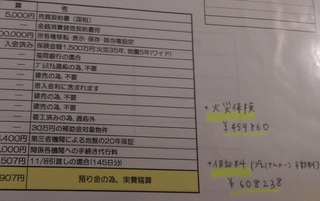 算 者
5,000円 売買契約書(国税)
— 金銭消費貸借契約書用
00,000円 所有権移転・表示・保存・抵当権設定
入金済み 保険金額1,500万円:火災35年、地震5年(ワイド)
— 福岡銀行の場合
— 適応の為、不要
— 建売の為、不要
— 借入金利に含まれます
— 建売の為、不要
— 建売の為、不要
— 建売の為、不要
— 着工済みの為、適応外
— 30万円の補助金対象物件
,400円 第三者機関による地盤の20年保証
,000円 関係各機関への手続き代行料
,507円 11/8引渡しの場合(145日分)
,907円 預り金の為、実費精算
+火災保険
¥459860
+保証料
¥608238